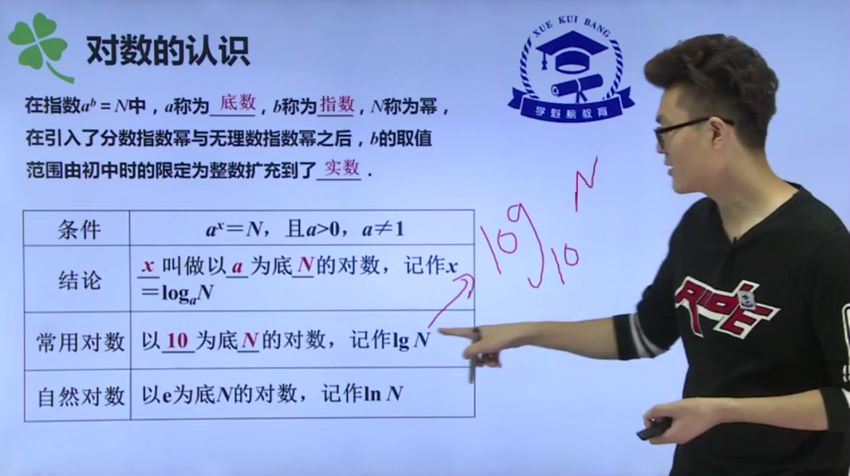 对数的认识
XUE KUI BANG
学魁榜教育
在指数aᵇ=N中，a称为底数，b称为指数，N称为幂，
在引入了分数指数幂与无理数指数幂之后，b的取值
范围由初中时的限定为整数扩充到了实数．
条件 aˣ=N，且a>0，a≠1
结论 x叫做以a为底N的对数，记作x
=logₐN
常用对数 以10为底N的对数，记作lg N
自然对数 以e为底N的对数，记作ln N
log₁₀N
RIDE